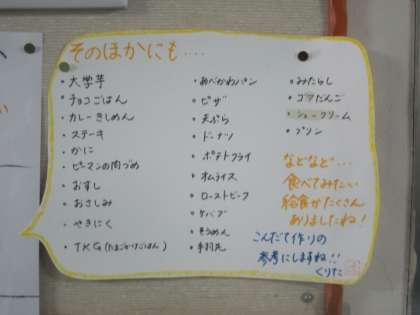 そのほかにも....
・大学芋
・チョコごはん
・カレーきしめん
・ステーキ
・かに
・ピーマンの肉づめ
・おすし
・おさしみ
・やきにく
・TKG(たまごかけごはん)
・あべかわパン
・ピザ
・天ぷら
・ドーナツ
・ポテトフライ
・オムライス
・ローストビーフ
・ケバブ
・そうめん
・手羽先
・みたらし
・ゴマだんご
・シュークリーム
・プリン
などなど...
食べてみたい
給食がたくさん
ありましたね!
こんだて作りの
参考にしますね!!
くりた